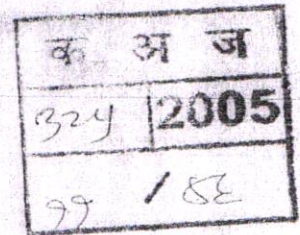 क अ ज
३२५ 2005
११ /